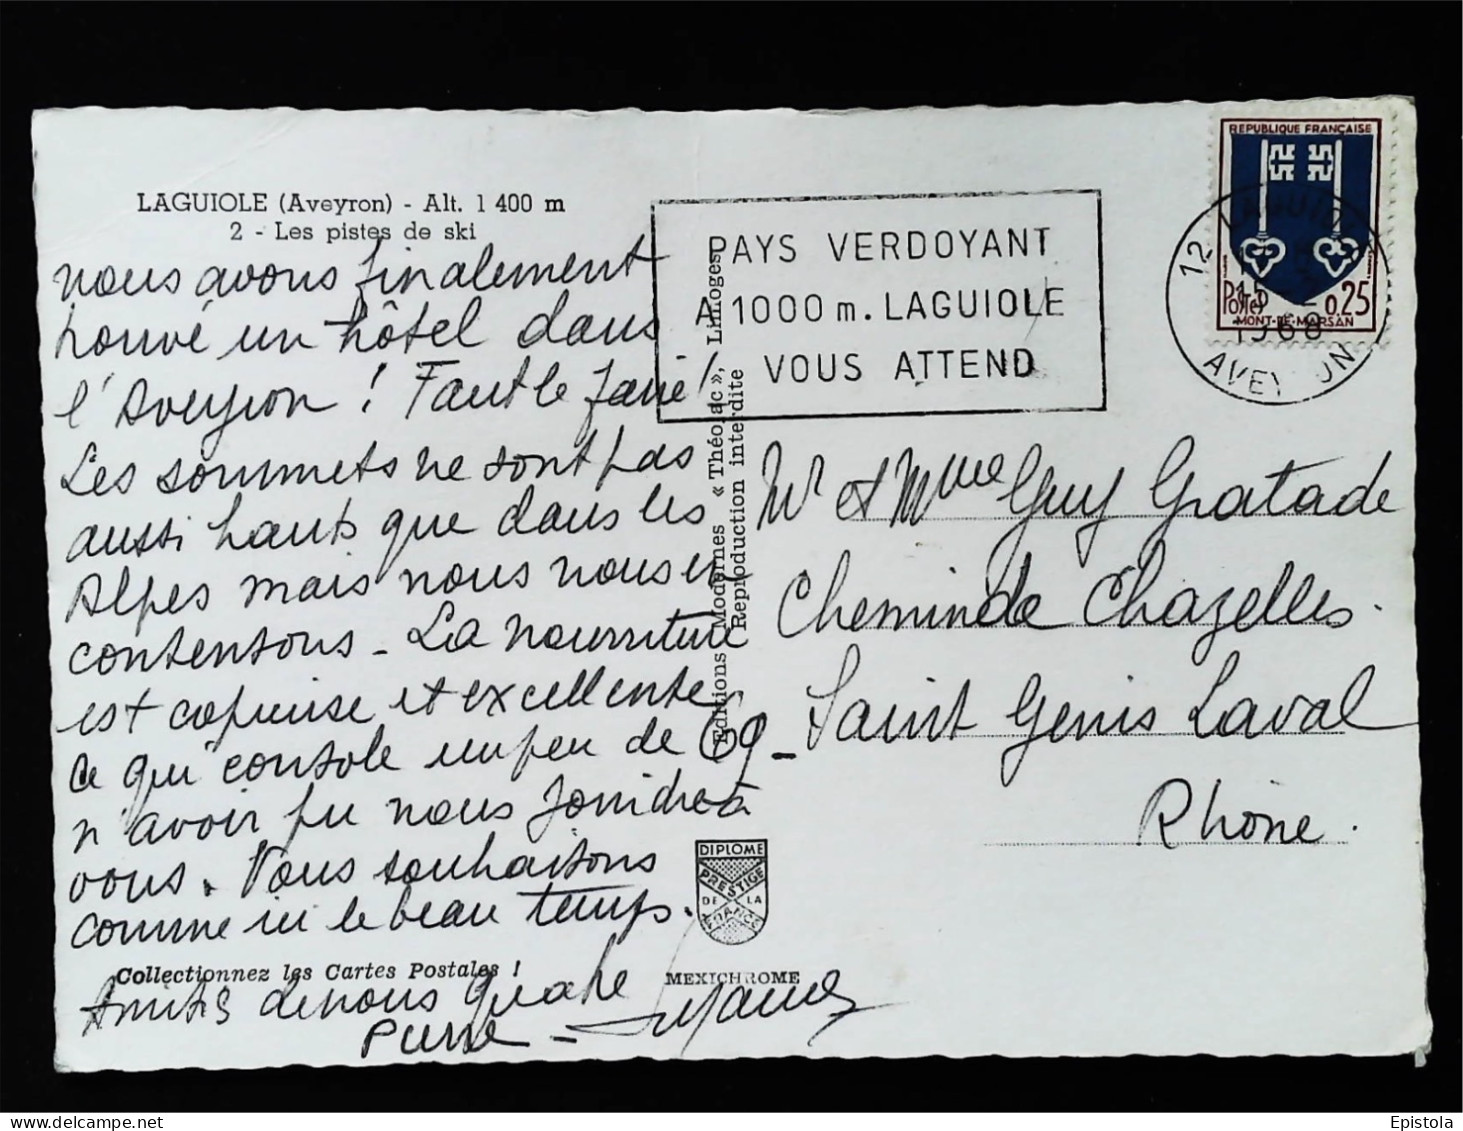 LAGUIOLE (Aveyron) - Alt. 1 400 m
2 - Les pistes de ski
nous avons finalement
trouvé un hôtel dans
l'Aveyron ! Faut le faire !
Les sommets ne sont pas
aussi hauts que dans les
Alpes mais nous nous en
contentons - La nourriture
est copieuse et excellente
ce qui console un peu de
n'avoir pu nous joindre à
vous. Vous souhaitons
comme ici le beau temps.
Collectionnez les Cartes Postales !
Amitiés de nous quatre
Pierre - Suzanne
Editions Modernes « Théojac », Limoges
Reproduction interdite
DIPLOME
PRESTIGE
DE LA
FRANCE
MEXICHROME
PAYS VERDOYANT
A 1000 m. LAGUIOLE
VOUS ATTEND
REPUBLIQUE FRANÇAISE
Postes 0,25
MONT-DE-MARSAN
12 LAGUIOLE
1968
AVEYRON
Mr et Mme Guy Gratade
Chemin de Chazelles.
69 - Saint Genis Laval
Rhône.
Epistola